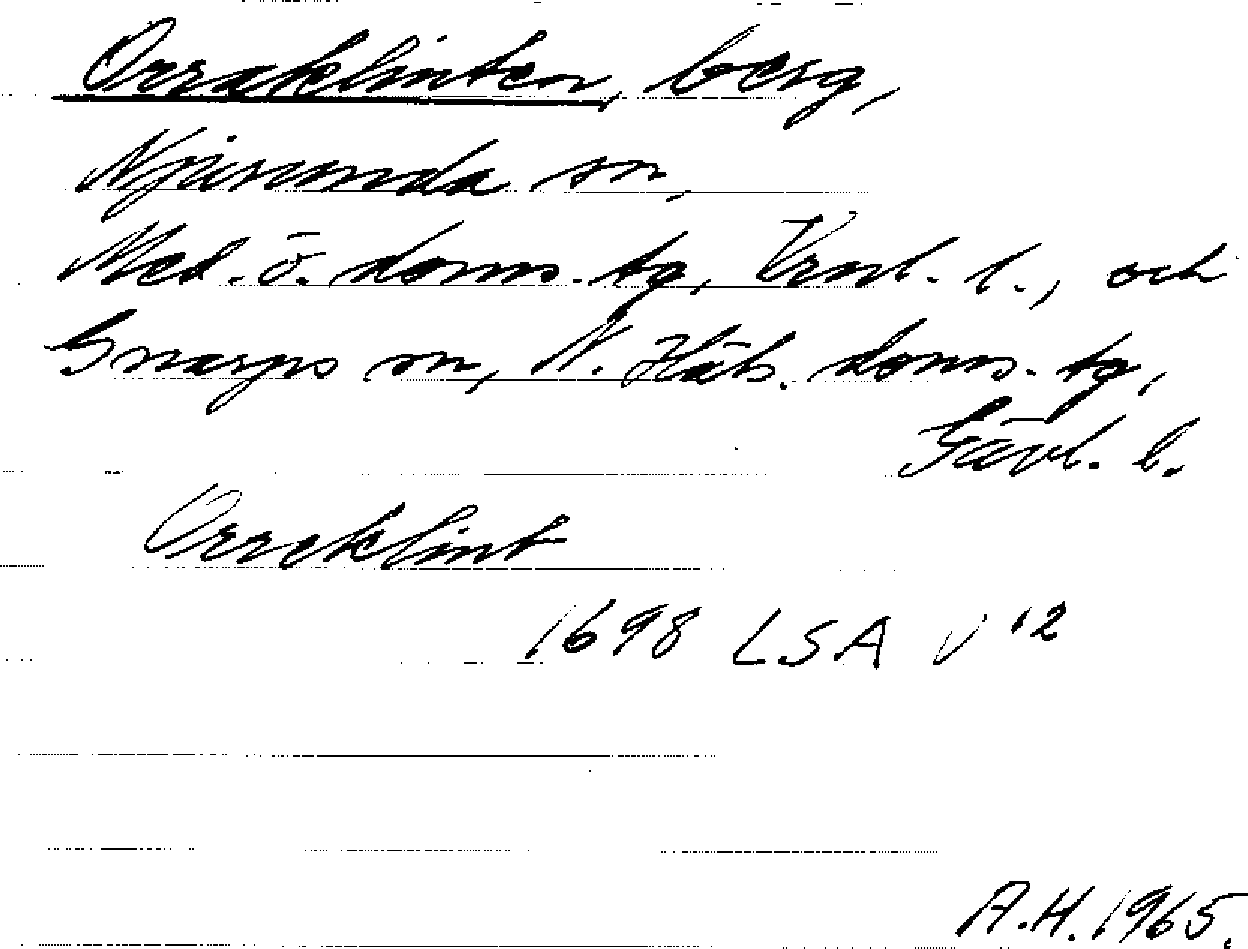 Orraklinten, berg,
Njurunda sn,
Med. ö. doms. tg, Vrnl. l., och
Gnarps sn, N. Häls. doms. tg,
Gävl. l.
Orreklint
1698 LSA V 12
A.H. 1965.